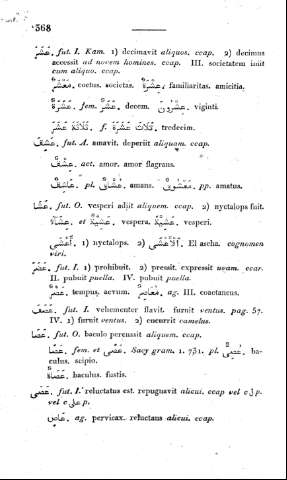 568
عَشَرَ. fut. I. Kam. 1) decimavit aliquos. ccap. 2) decimus
accessit ad novem homines. ccap. III. societatem iniit
cum aliquo. ccap.
مَعْشَرٌ. coetus. societas. عِشْرَةٌ, familiaritas. amicitia.
عَشَرَةٌ. fem. عَشْرٌ. decem. عِشْرُونَ. viginti.
ثَلَاثَةَ عَشَرَ. f. ثَلَاثَ عَشْرَةَ. tredecim.
عَشِقَ. fut. A. amavit. deperiit aliquam. ccap.
عِشْقٌ. act. amor. amor flagrans.
عَاشِقٌ. pl. عُشَّاقٌ. amans. مَعْشُوقٌ. pp. amatus.
عَشَا. fut. O. vesperi adjit aliquem. ccap. 2) nyctalops fuit.
عِشَاءٌ. et عَشِيَّةٌ. vespera. عَشِيَّةً. vesperi.
أَعْشَى. 1) nyctalops. 2) أَلْأَعْشَى. El ascha. cognomen
viri.
عَصَرَ. fut. I. 1) prohibuit. 2) pressit. expressit uvam. ccar.
II. pubuit puella. IV. pubuit puella.
عَصْرٌ. tempus, aevum. مُعَاصِرٌ. ag. III. coaetaneus.
عَصَفَ. fut. I. vehementer flavit. furuit ventus. pag. 57.
IV. 1) furuit ventus. 2) cucurrit camelus.
عَصَا. fut. O. baculo percussit aliquem. ccap.
عَصًا. fem. et عَصًى. Sacy gram. 1. 731. pl. عُصِيٌّ. ba-
culus. scipio.
عَصَاةٌ. baculus. fustis.
عَصَى. fut. I. reluctatus est. repugnavit alicui. ccap vel c لِ p.
vel c عَلَى p.
عَاصٍ. ag. pervicax. reluctans alicui. ccap.